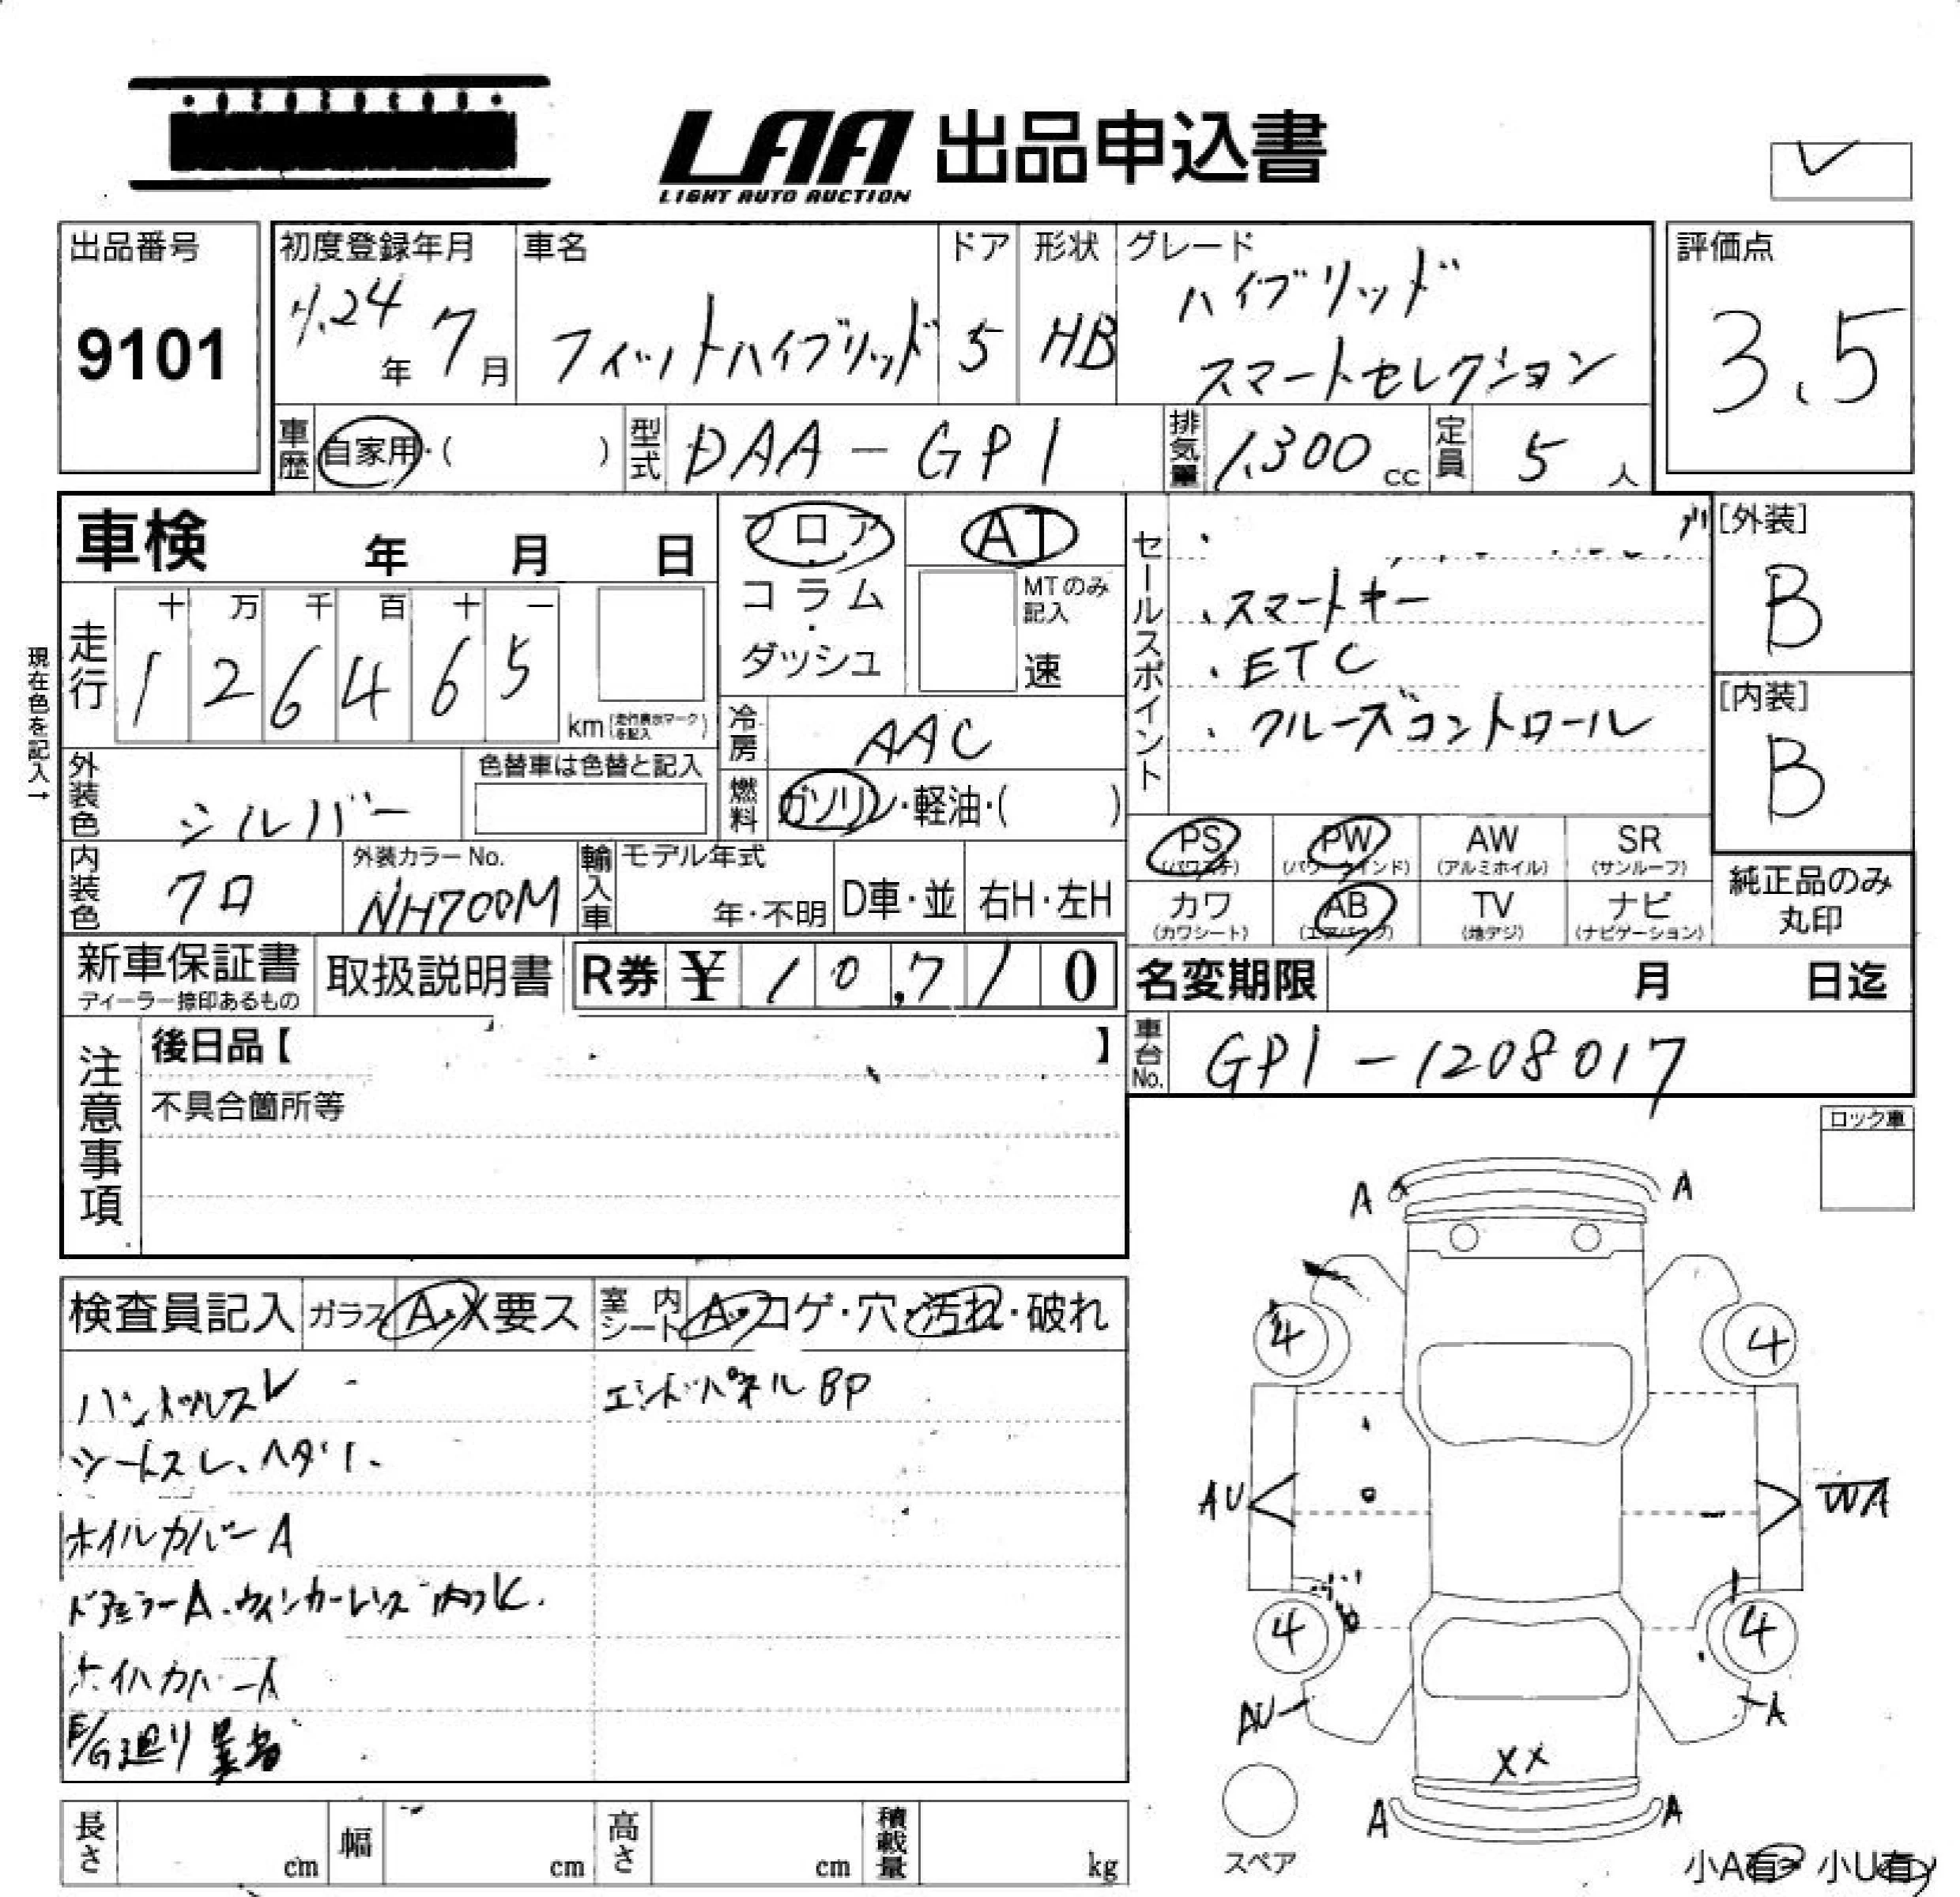 LAA 出品申込書
LIGHT AUTO AUCTION
出品番号
9101
初度登録年月
H.24年 7月
車名
フィットハイブリッド
ドア
5
形状
HB
グレード
ハイブリッド
スマートセレクション
評価点
3.5
車歴 自家用・( )
型式 DAA-GP1
排気量 1,300 cc
定員 5人
車検 年 月 日
フロア・コラム・ダッシュ
AT
MTのみ記入
速
走行
十 万 千 百 十 一
1 2 6 4 6 5
km
(走行表示マークを記入)
現在色を記入→
冷房 AAC
燃料 ガソリン・軽油・( )
外装色 シルバー
色替車は色替と記入
内装色 クロ
外装カラーNo.
NH700M
輸入車
モデル年式
年・不明
D車・並
右H・左H
セールスポイント
・スマートキー
・ETC
・クルーズコントロール
[外装]
B
[内装]
B
PS (パワステ)
PW (パワーウインド)
AW (アルミホイル)
SR (サンルーフ)
カワ (カワシート)
AB (エアバック)
TV (地デジ)
ナビ (ナビゲーション)
純正品のみ
丸印
新車保証書
ディーラー捺印あるもの
取扱説明書
R券 ¥10,710
名変期限 月 日迄
車台No. GP1-1208017
注意事項
後日品【 】
不具合箇所等
ロック車
検査員記入
ガラス A・X要ス
室内シート A・コゲ・穴・汚れ・破れ
ハンドルスレ
エンドパネルBP
シートスレ、ヘタリ、
ホイルカバーA
ドアミラーA、ウィンカーレンズ
ホイルカバーA
E/G廻り
A A
4 4
AU
WA
4 4
AU
A
XX
A A
スペア
小A有 小U有
長さ cm
幅 cm
高さ cm
積載量 kg